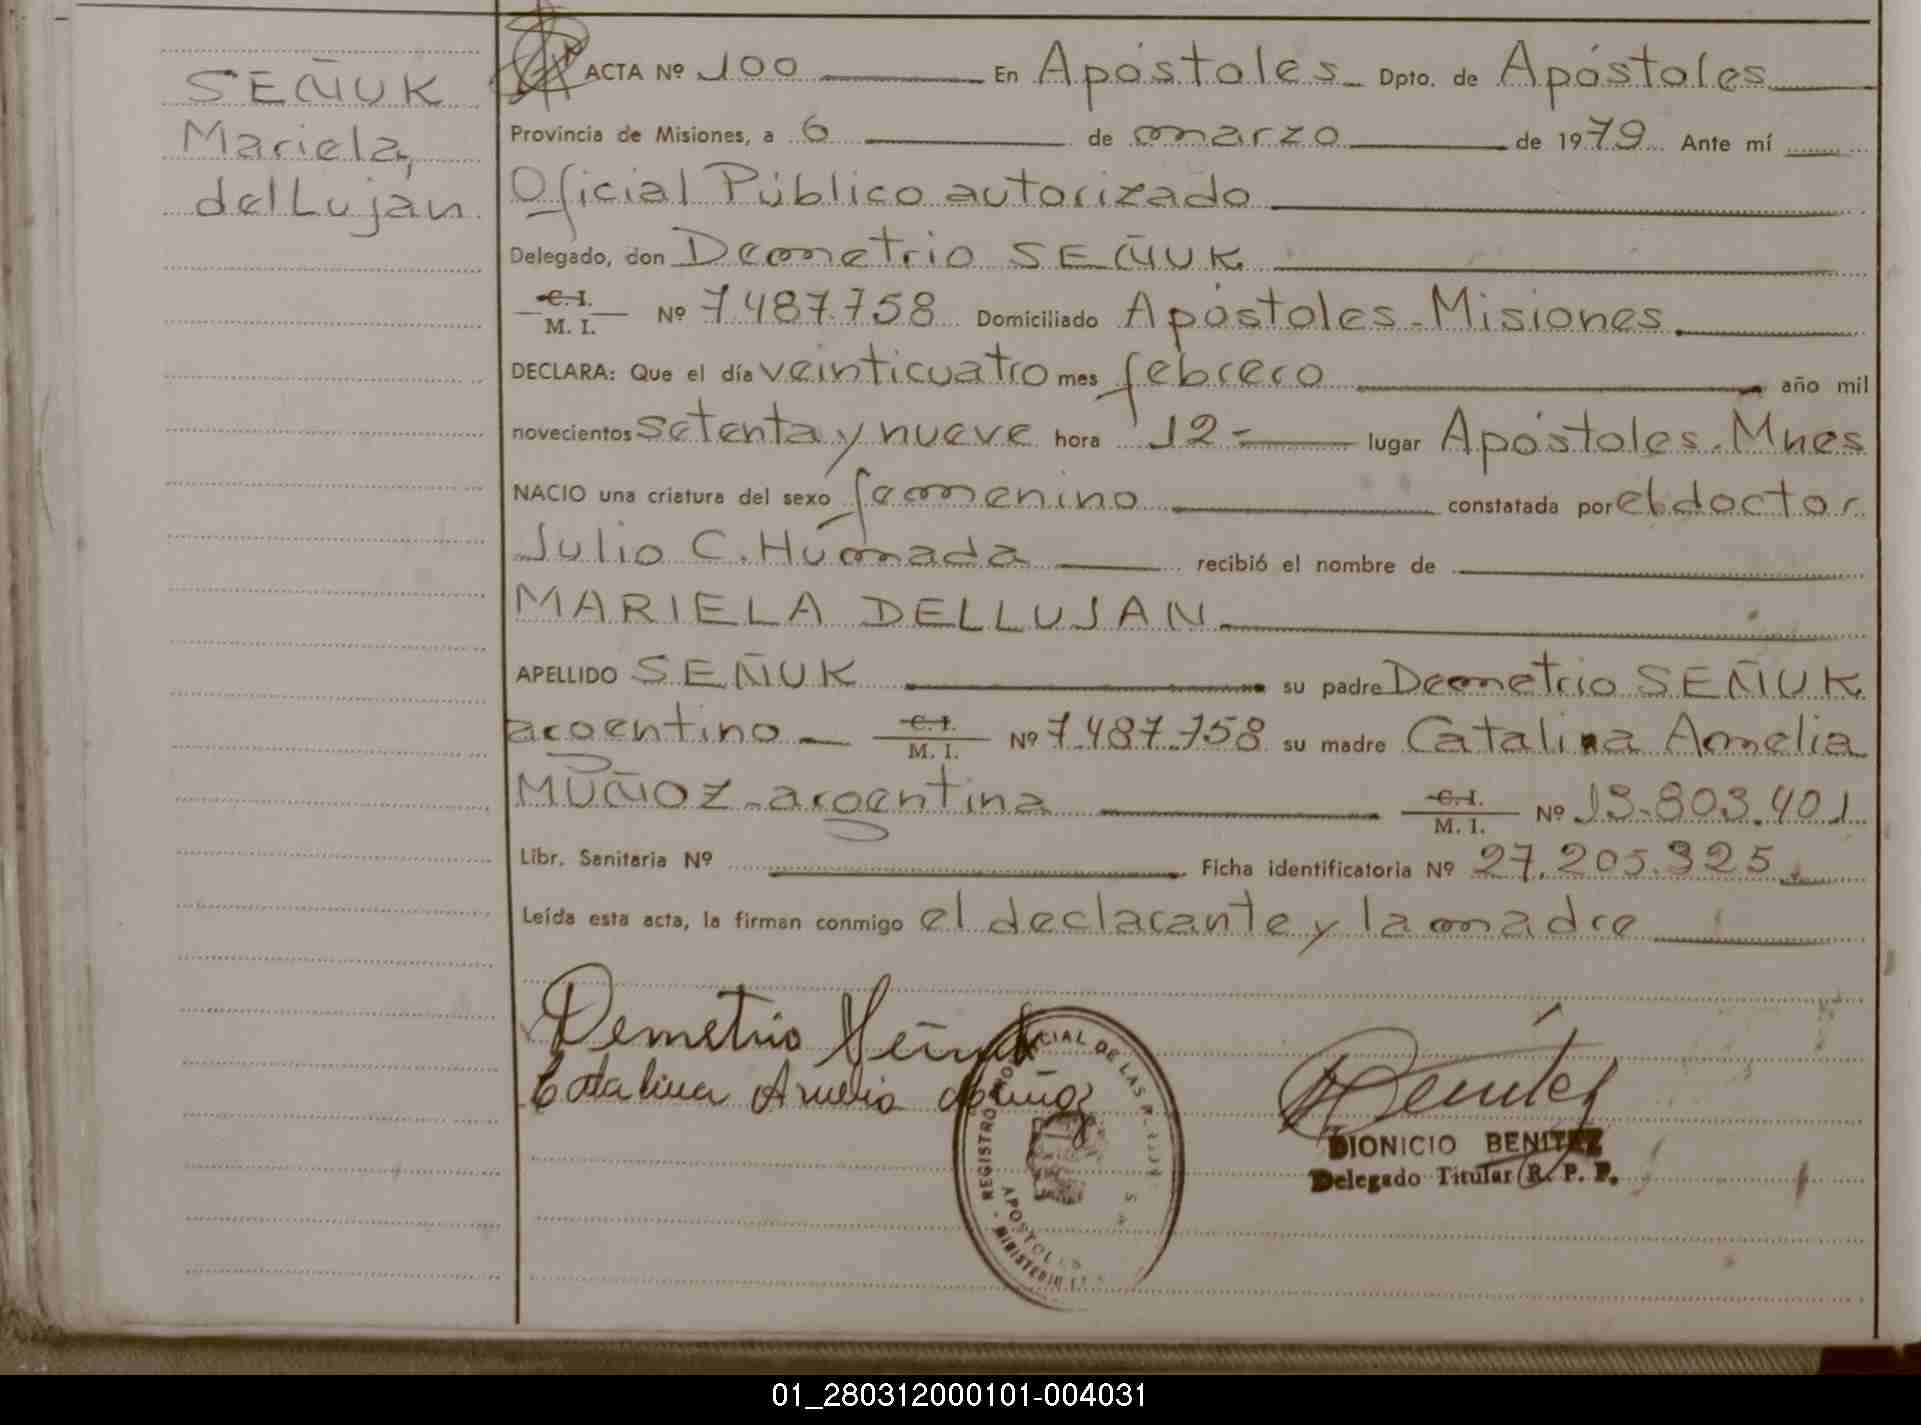 SEÑUK
Mariela,
del Luján
ACTA Nº 100 En Apóstoles Dpto. de Apóstoles
Provincia de Misiones, a 6 de marzo de 1979 Ante mí
Oficial Público autorizado
Delegado, don Demetrio SEÑUK
C. I.
M. I. Nº 7.487.758 Domiciliado Apóstoles - Misiones
DECLARA: Que el día veinticuatro mes febrero año mil
novecientos setenta y nueve hora 12- lugar Apóstoles. Mnes
NACIO una criatura del sexo femenino constatada por el doctor
Julio C. Humada recibió el nombre de
MARIELA DEL LUJAN
APELLIDO SEÑUK su padre Demetrio SEÑUK
argentino - C. I.
M. I. Nº 7.487.758 su madre Catalina Amelia
MUÑOZ - argentina C. I.
M. I. Nº 13.803.401
Libr. Sanitaria Nº Ficha identificatoria Nº 27.205.325
Leída esta acta, la firman conmigo el declarante y la madre
Demetrio Señuk
Catalina Amelia Muñoz
Benítez
DIONICIO BENITEZ
Delegado Titular R. P. P.
REGISTRO PROVINCIAL DE LAS
APOSTOLES
MINISTERIO
01_280312000101-004031